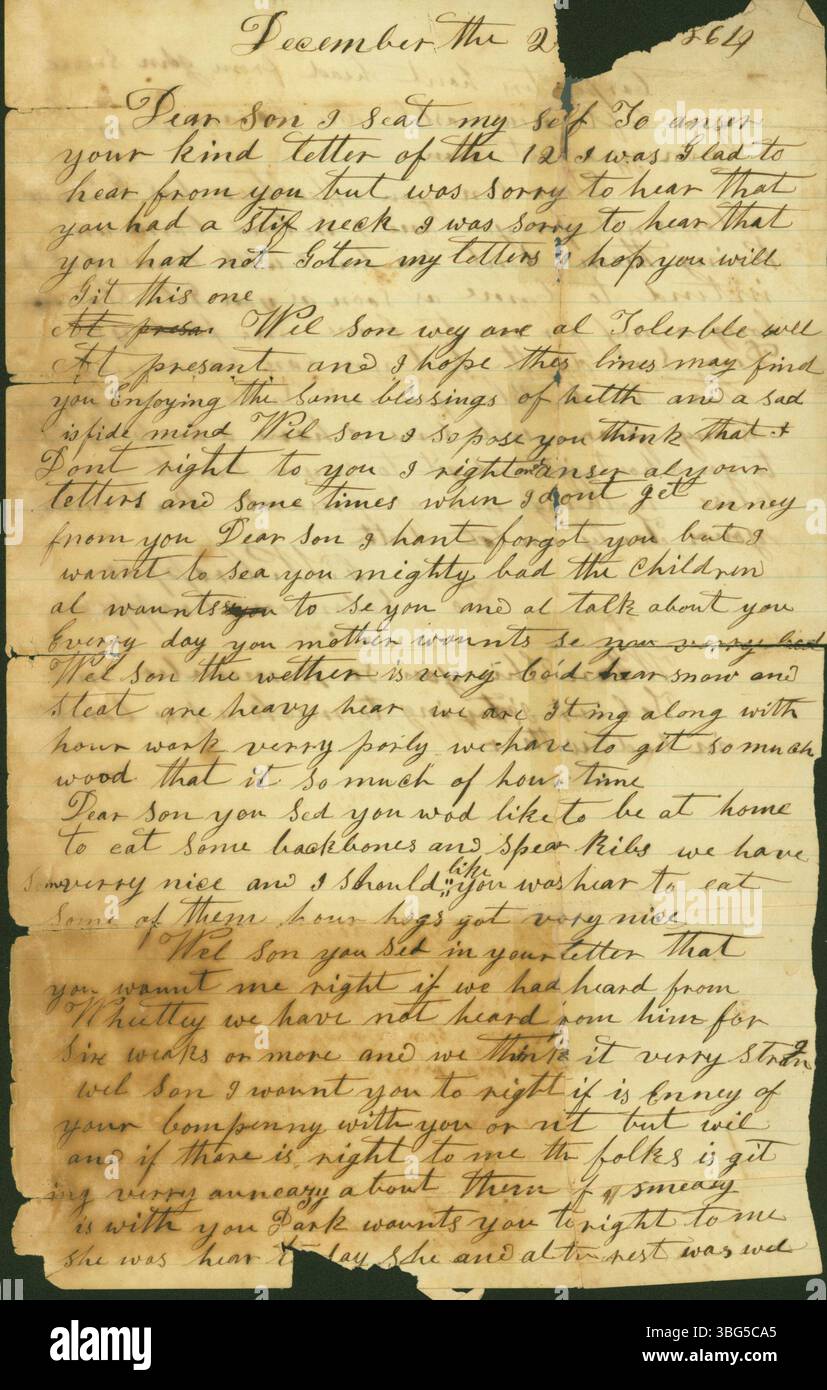 December the 2 864
Dear son I seat my self To anser
your kind letter of the 12 I was Glad to
hear from you but was sorry to hear that
you had a stif neck I was sorry to hear that
you had not Goten my letters I hop you will
Git this one
At presa. Wel son wey are al Tolerble well
At presant and I hope thes lines may find
you Enjoying the same blessings of helth and a sad
isfide mind Wel son I sopose you think that I
Dont right to you I right and anser al your
letters and some times when I dont get enney
from you Dear son I hant forgot you but I
waunt to sea you mighty bad the Children
al waunts you to se you and al talk about you
Everry day you mother waunts se you verry bad
Wel son the wether is verry Cold hear snow and
sleat are heavy hear we are Iting along with
hour work verry porly we have to git so much
wood that it so much of hour time
Dear son you sed you wod like to be at home
to eat some backbones and spear Ribs we have
som verry nice and I should like you was hear to eat
some of them hour hogs got very nice
Wel son you sed in your letter that
you waunt me right if we had heard from
Whettley we have not heard from him for
six weaks or more and we think it verry strang
wel son I waunt you to right if is Enney of
your Compenny with you or nt but wil
and if thare is right to me the folks is git
ing verry auneazy about them if smeazy
is with you Dark waunts you to right to me
she was hear to day she and al the rest was wel
alamy
Image ID: 3BG5CA5
www.alamy.com